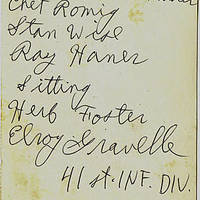 Chet Romig
Stan Wise
Ray Haner
Sitting
Herb Foster
Elroy Gravelle
41st. INF. DIV.